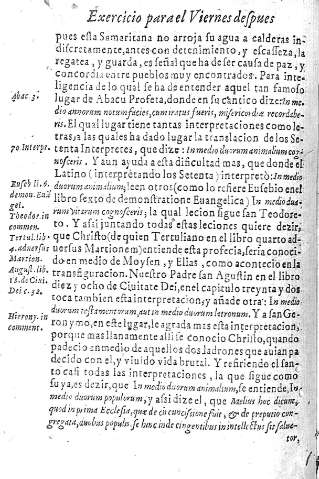 Exercicio para el Viernes despues
pues esta Samaritana no arroja su agua a calderas in-
discretamente, antes con detenimiento, y escasseza, la
regatea, y guarda, es señal que ha de ser causa de paz, y
concordia entre pueblos muy encontrados. Para inte-
ligencia de lo qual se ha de entender aquel tan famoso
lugar de Abacu Profeta, donde en su cãtico dize: In me-
Abac. 3.
dio annorum notum facies, cum iratus fueris, misericordiæ recordabe-
ris. El qual lugar tiene tantas interpretaciones como le-
tras, a las quales ha dado lugar la translacion de los Se-
70 Interpr.
tenta Interpretes, que dize: In medio duorum animalium cog-
nosceris. Y aun ayuda a esta dificultad mas, que donde el
Latino (interpretando los Setenta) interpretò: In medio
Euseb. li. 6.
duorum animalium; leen otros (como lo refiere Eusebio en el
de dem. Euã
gel.
libro sexto de demonstratione Euangelica) In medio dua-
rum vitarum cognosceris; la qual lecion sigue san Teodore-
Theodor. in
commen.
to. Y assi juntando todas estas leciones quiere dezir,
Tertul. lib.
que Christo (de quien Tertuliano en el libro quarto ad-
4. aduersus
uersus Martionem) entiende esta profecia, seria conoci-
Martion.
do en medio de Moysen, y Elias, como acontecio en la
August. lib.
transfiguracion. Nuestro Padre san Agustin en el libro
18. de Ciui.
diez y ocho de Ciuitate Dei, en el capitulo treynta y dos
Dei c. 32.
toca tambien esta interpretacion, y añade otra: In medio
duorum testamentorum, aut in medio duorum latronum. Y a san Ge-
Hierony. in
comment.
ronymo, en este lugar, le agrada mas esta interpretacion,
porque mas llanamente alli se conocio Christo, quando
padecio en medio de aquellos dos ladrones que auian pa
decido con el, y viuido vida brutal. Y refiriendo el san-
to casi todas las interpretaciones, la que sigue como
suya, es dezir, que In medio duorum animalium, se entiende, In
medio duorum populorum, y assi dize el, que
quod in prima Ecclesia, quæ de circuncisione fuit, & de preputio con-
gregata, duobus populis se hinc inde cingentibus intellectus sit Salua-
tor,